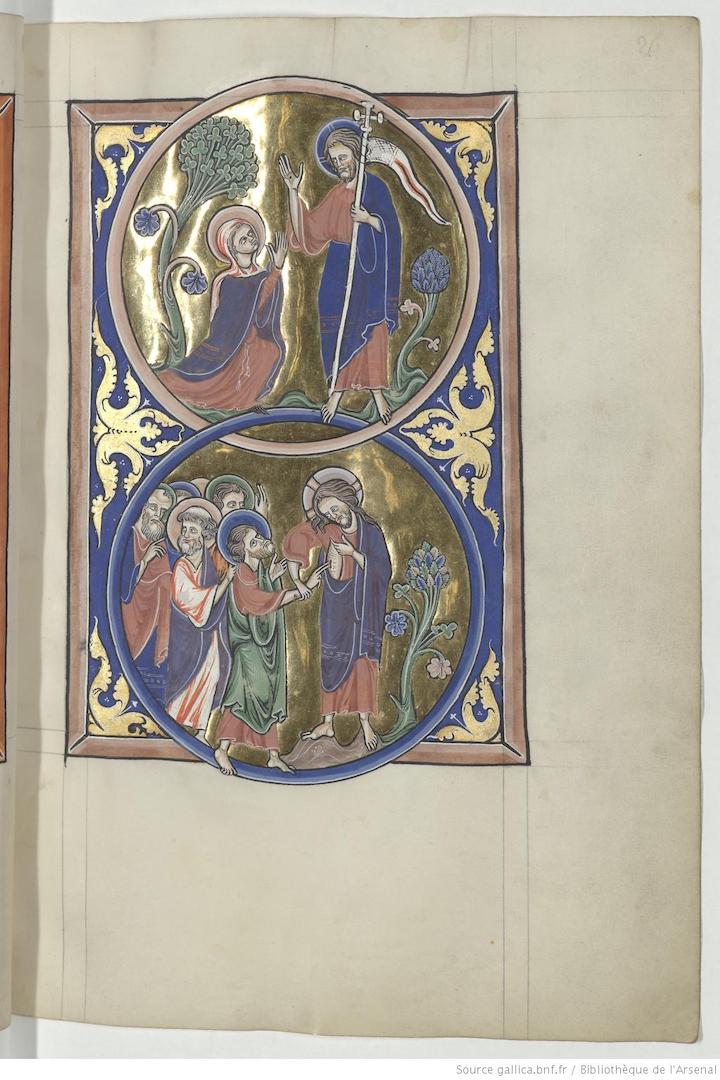 26
Source gallica.bnf.fr / Bibliothèque de l'Arsenal